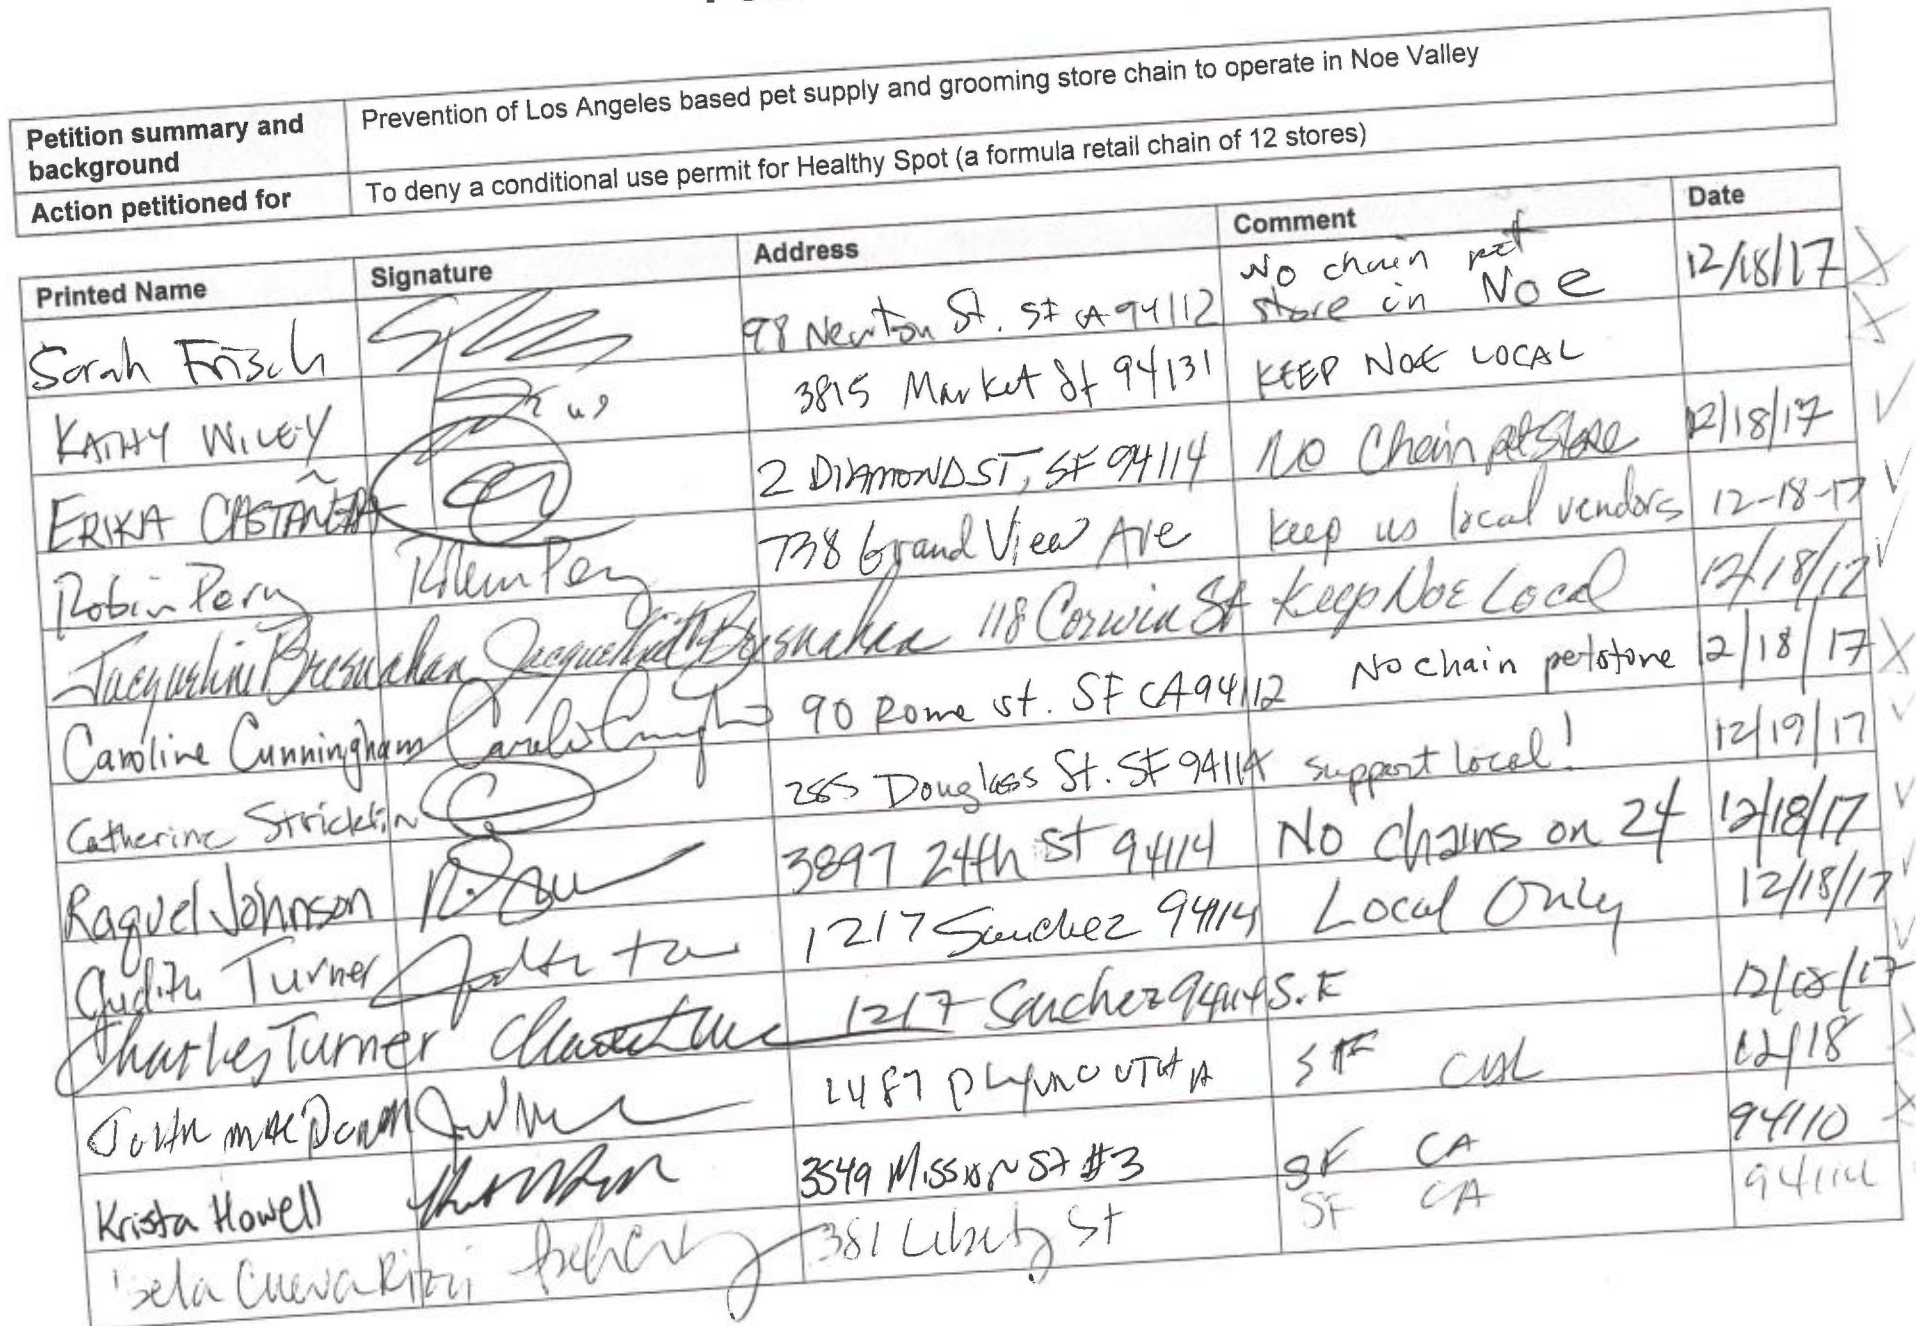 Petition summary and background
Prevention of Los Angeles based pet supply and grooming store chain to operate in Noe Valley
Action petitioned for
To deny a conditional use permit for Healthy Spot (a formula retail chain of 12 stores)
Printed Name Signature Address Comment Date
Sarah Frisch 98 Newton St. SF CA 94112 No chain pet store in Noe 12/18/17 X
KATHY WILEY 3815 Market St 94131 KEEP NOE LOCAL X
ERIKA CASTAÑEDA 2 DIAMOND ST, SF 94114 No Chain pet store 12/18/17 ✓
Robin Pery 738 Grand View Ave keep us local vendors 12-18-17 ✓
Jacqueline Bresnahan Jacqueline Bresnahan 118 Corwin St Keep Noe Local 12/18/17 ✓
Caroline Cunningham 90 Rome st. SF CA 94112 No chain petstore 12/18/17 X
Catherine Stricklin 285 Douglass St. SF 94114 support local! 12/19/17 ✓
Raquel Johnson 3897 24th St 94114 No Chains on 24 12/18/17 ✓
Judith Turner 1217 Sanchez 94114 Local Only 12/18/17 ✓
Charles Turner 1217 Sanchez 94114 S.F 12/18/17 ✓
1487 PLYMOUTH A SF CAL 12/18
Krista Howell 3549 Mission St #3 SF CA 94110 X
381 Liberty St SF CA